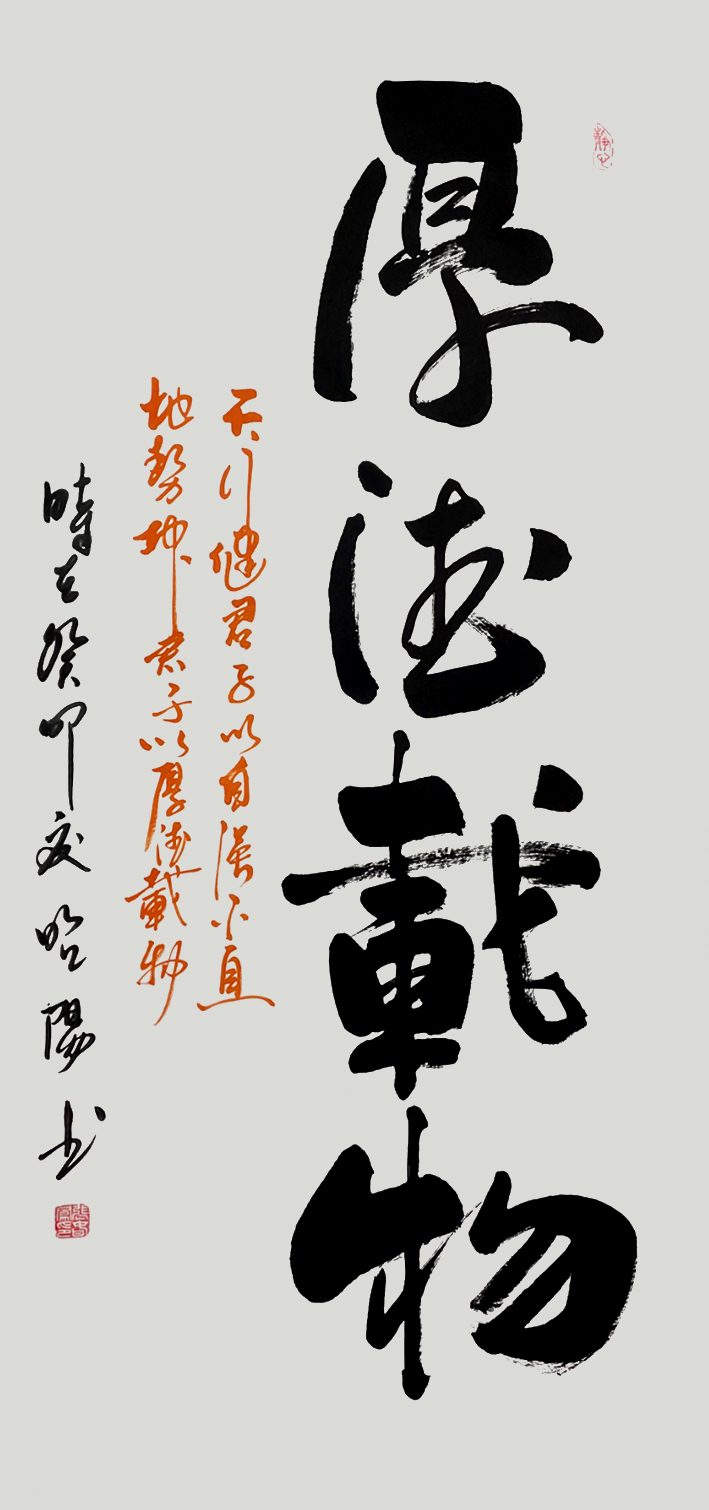 厚德載物
天行健君子以自强不息
地勢坤君子以厚德載物
時在癸卯夏昭陽书